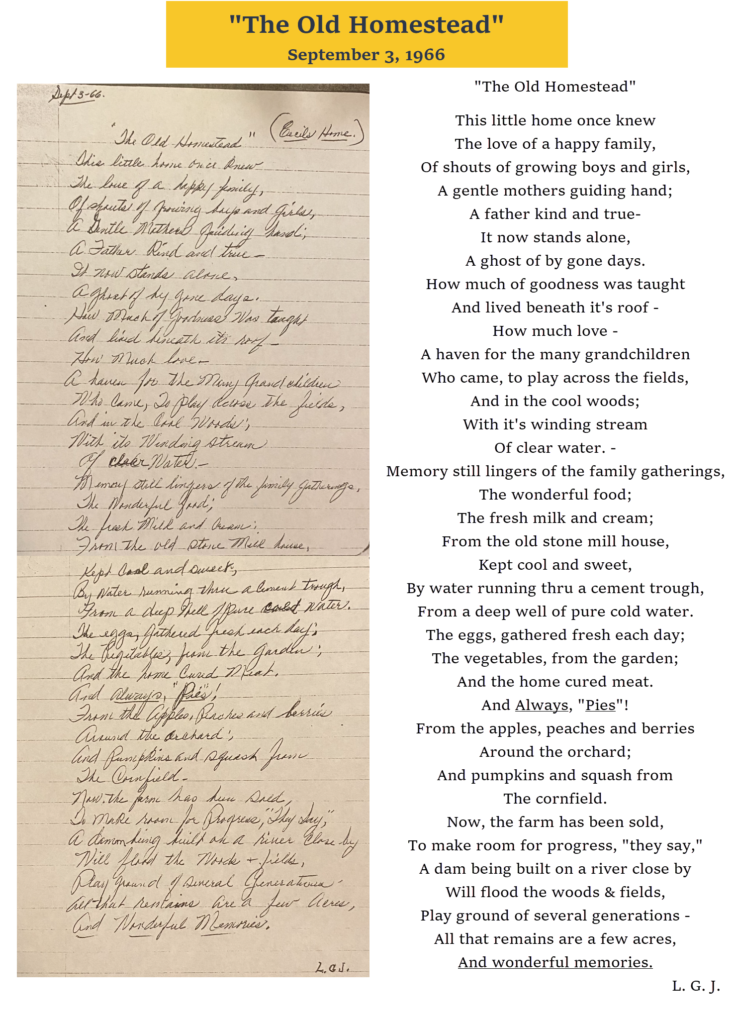 "The Old Homestead"
September 3, 1966
Sept 3-66.
"The Old Homestead" (Cecils Home.)
This little home once knew
The love of a happy family,
Of shouts of growing boys and Girls,
A Gentle Mothers Guiding hand;
A Father Kind and true—
It now stands alone,
A ghost of by gone days.
How Much of Goodness Was taught
And lived beneath it's roof—
How Much love—
A haven for the Many Grandchildren
Who Came, To play across the fields,
And in the Cool Woods;
With its Winding stream
Of clear Water.—
Memory still lingers of the family Gatherings,
The Wonderful food;
The fresh Milk and Cream;
From the old stone Mill house,
Kept Cool and sweet,
By Water running thru a Cement trough,
From a deep Well of pure cold Water.
The eggs, gathered fresh each day;
The Vegetables, from the Garden;
And the home Cured Meat.
And Always, "Pies"!
From the Apples, Peaches and berries
Around the orchard;
And Pumpkins and squash from
The Cornfield—
Now, the farm has been Sold,
To Make room for Progress, "They Say,"
A dam being built on a river Close by
Will flood the Woods + fields,
Play Ground of Several Generations—
All that remains are a few Acres,
And Wonderful Memories.
L.G.J.
"The Old Homestead"
This little home once knew
The love of a happy family,
Of shouts of growing boys and girls,
A gentle mothers guiding hand;
A father kind and true-
It now stands alone,
A ghost of by gone days.
How much of goodness was taught
And lived beneath it's roof -
How much love -
A haven for the many grandchildren
Who came, to play across the fields,
And in the cool woods;
With it's winding stream
Of clear water. -
Memory still lingers of the family gatherings,
The wonderful food;
The fresh milk and cream;
From the old stone mill house,
Kept cool and sweet,
By water running thru a cement trough,
From a deep well of pure cold water.
The eggs, gathered fresh each day;
The vegetables, from the garden;
And the home cured meat.
And Always, "Pies"!
From the apples, peaches and berries
Around the orchard;
And pumpkins and squash from
The cornfield.
Now, the farm has been sold,
To make room for progress, "they say,"
A dam being built on a river close by
Will flood the woods & fields,
Play ground of several generations -
All that remains are a few acres,
And wonderful memories.
L. G. J.